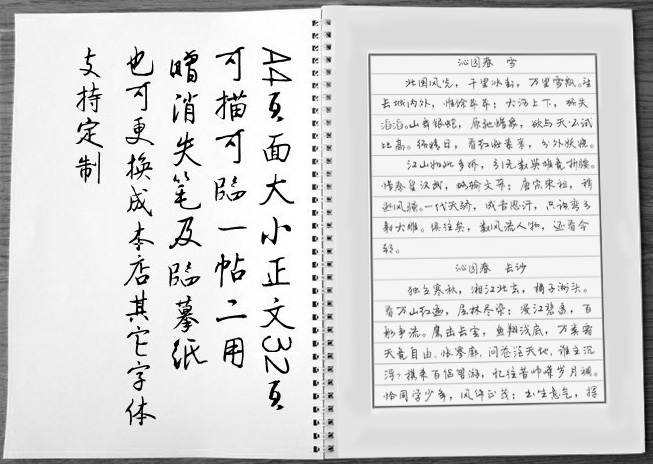 A4页面大小正文32页
可描可臨一帖二用
赠消失笔及臨摹纸
也可更换成本店其它字体
支持定制
沁园春 雪
北国风光，千里冰封，万里雪飘。望
长城内外，惟馀莽莽；大河上下，顿失
滔滔。山舞银蛇，原驰蜡象，欲与天公试
比高。须晴日，看红妆素裹，分外妖娆。
江山如此多娇，引无数英雄竞折腰。
惜秦皇汉武，略输文采；唐宗宋祖，稍
逊风骚。一代天骄，成吉思汗，只识弯弓
射大雕。俱往矣，数风流人物，还看今
朝。
沁园春 长沙
独立寒秋，湘江北去，橘子洲头。
看万山红遍，层林尽染；漫江碧透，百
舸争流。鹰击长空，鱼翔浅底，万类霜
天竞自由。怅寥廓，问苍茫大地，谁主沉
浮？携来百侣曾游，忆往昔峥嵘岁月稠。
恰同学少年，风华正茂；书生意气，挥